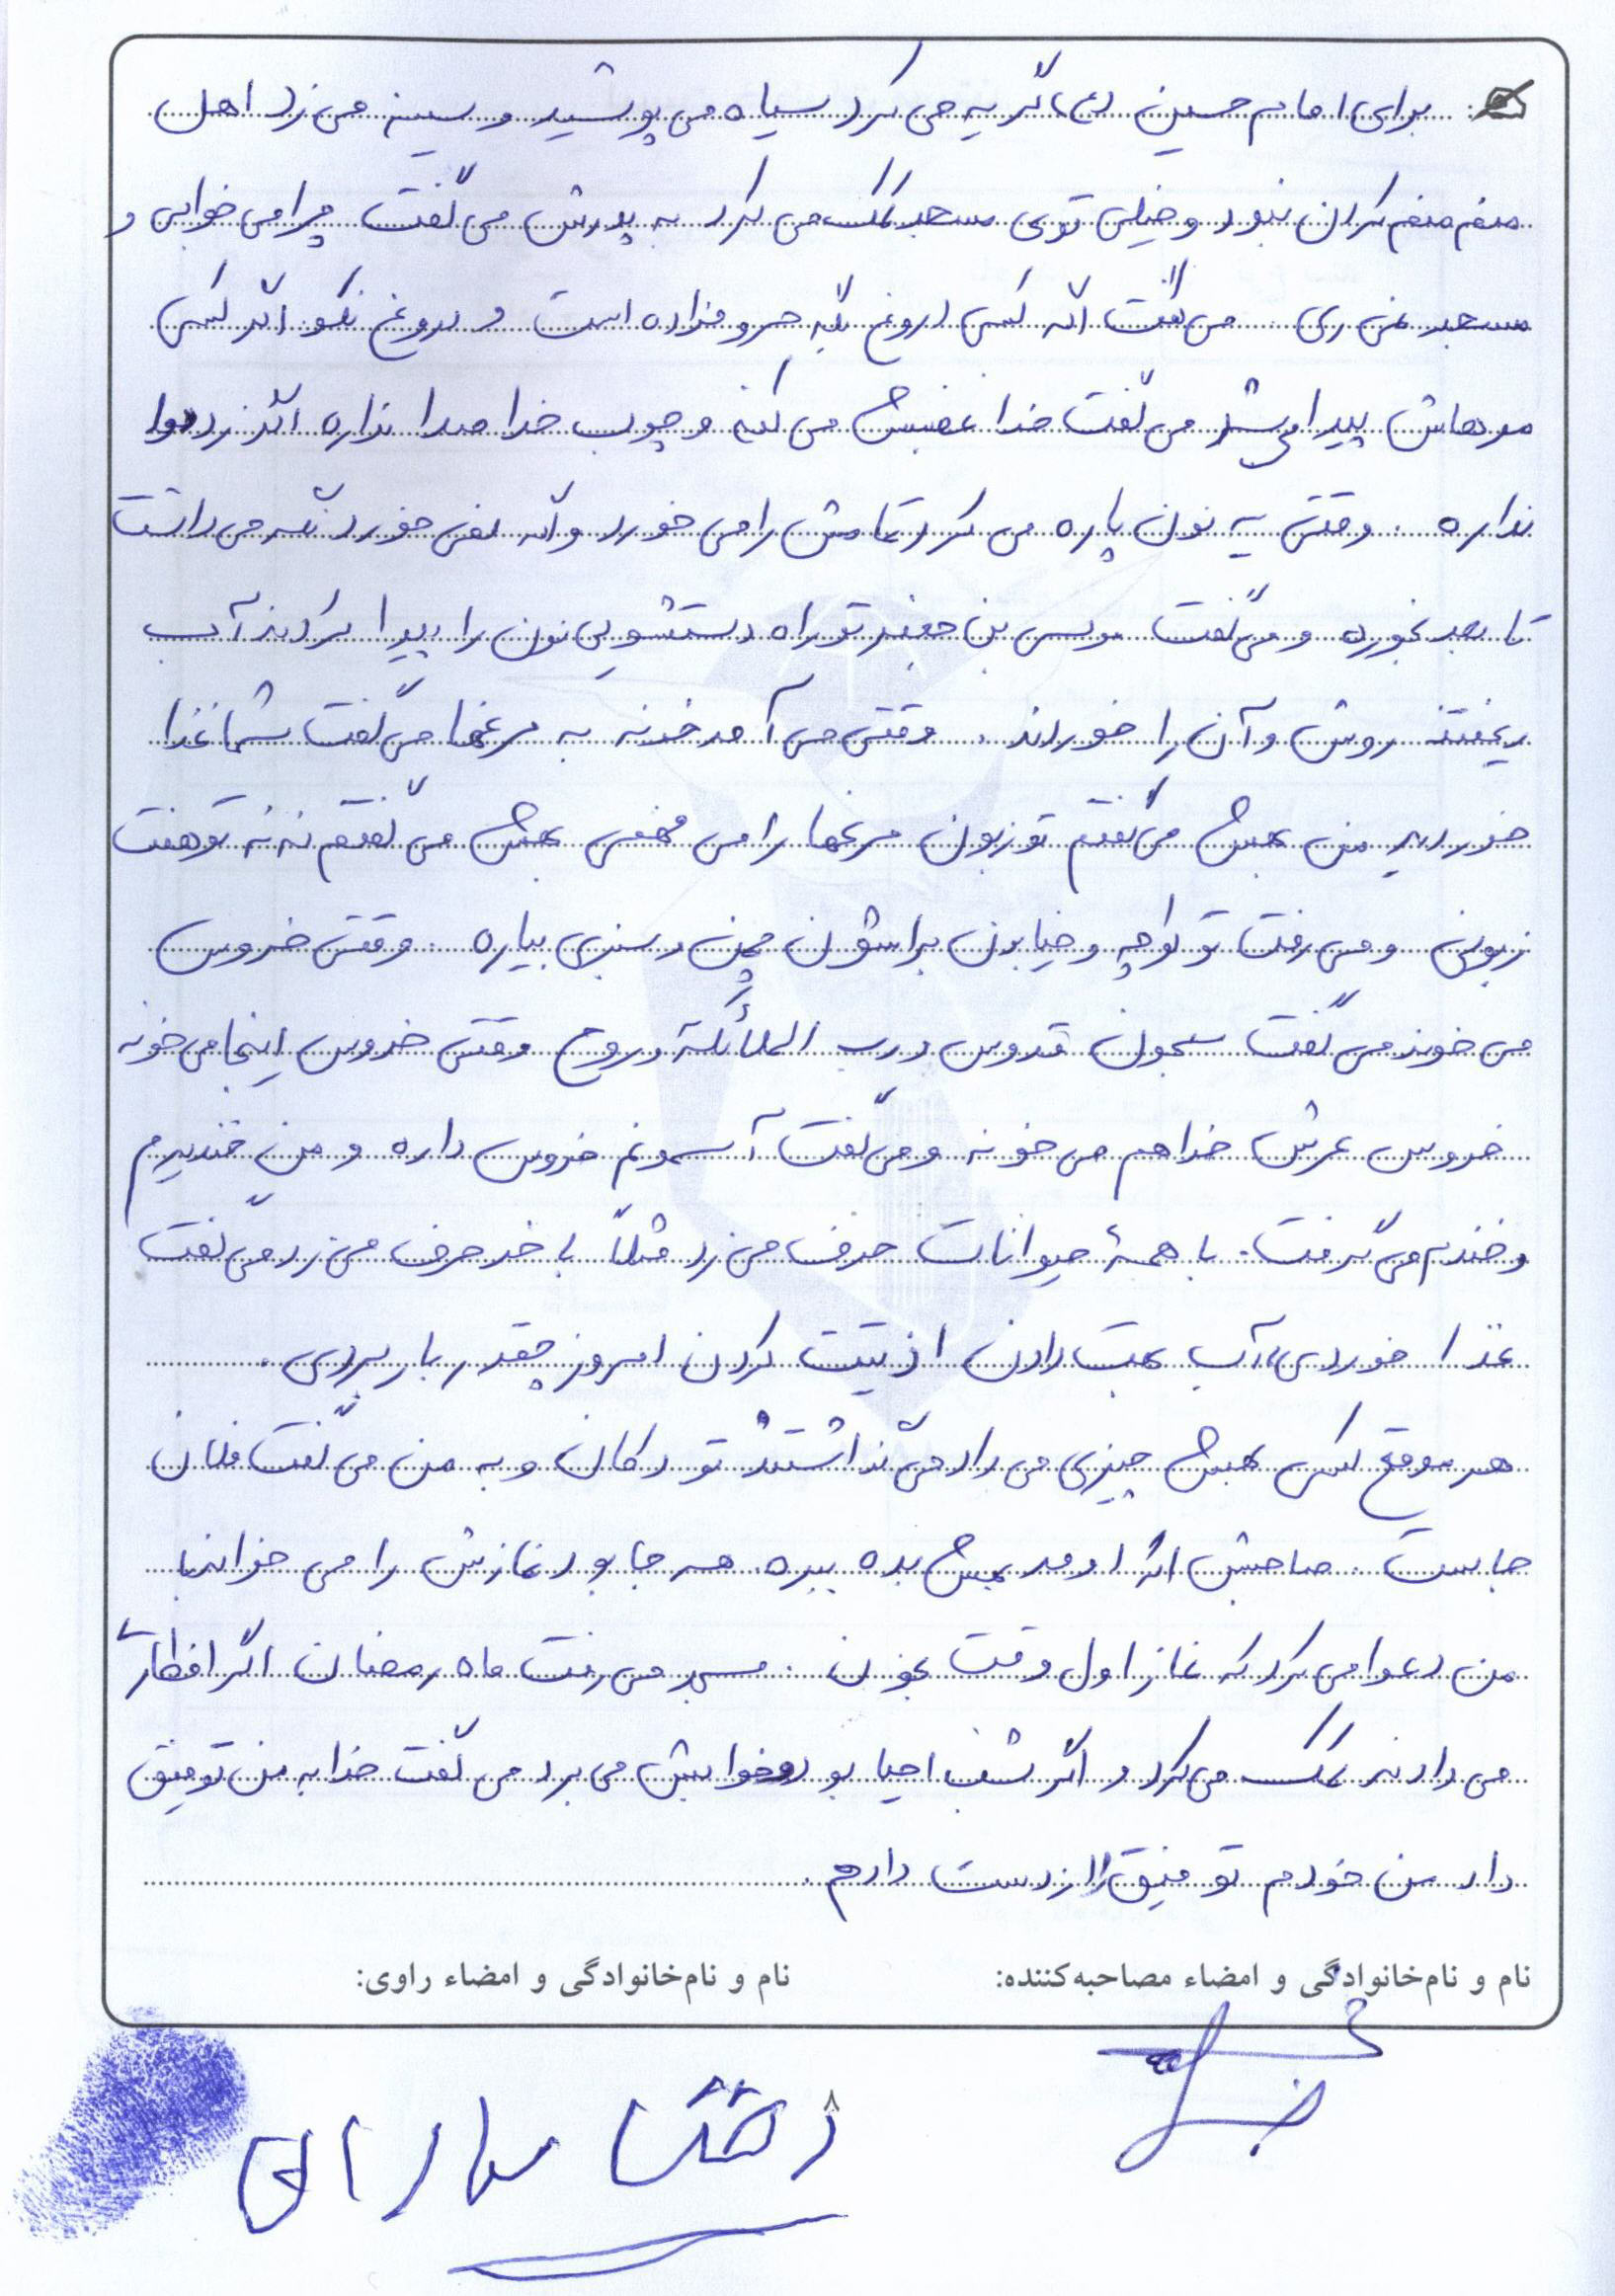 برای امام حسین (ع) گریه می کرد سیاه می پوشید و سینه می زد اهل
منم منم کردن نبود و خیلی توی مسجد کمک می کرد به پدرش می گفت چرا می خوابی و
مسجد نمی ری . می گفت اگه کسی دروغ بگه حرومزاده است و دروغ نگو. اگر کسی
موهاش پیدا می شد می گفت خدا غضبش می کنه و چوب خدا صدا نداره اگر زد دوا
نداره . وقتی یه نون پاره می کرد تمامش را می خورد و اگه نمی خورد نگه می داشت
تا بعد بخوره و می گفت موسی بن جعفر تو راه دستشویی نون را پیدا کردند آب
ریختند روش و آن را خوردند . وقتی می آمد خونه به مرغها می گفت شما غذا
خوردید من بهش می گفتم تو زبون مرغها را می فهمی بهش می گفتم ننه تو هفت
زبونی و می رفت تو کوچه و خیابون براشون چمن و سبزی بیاره . وقتی خروس
می خوند می گفت سبحون قدوس و رب الملائکة و روح وقتی خروس اینجا می خونه
خروس عرش خدا هم می خونه و می گفت آسمونم خروس داره و من خندیدم
و خندم می گرفت . با همهٔ حیوانات حرف می زد مثلاً با خر حرف می زد می گفت
غذا خوردی، آب بهت دادن اذیتت کردن امروز چقدر بار بردی .
هر موقع کسی بهش چیزی می داد می گذاشتش تو دکان و به من می گفت فلان
جاست . صاحبش اگه اومد بهش بده ببره. هر جا بود نمازش را می خواند با
من دعوا می کرد که نماز اول وقت بخون . مسجد می رفت ماه رمضان اگر افطاری
می دادند کمک می کرد و اگر شب احیا بود و خوابش می برد می گفت خدا به من توفیق
داد من خودم توفیق را از دست دادم .
نام و نام‌خانوادگی و امضاء مصاحبه‌کننده:
نام و نام‌خانوادگی و امضاء راوی: